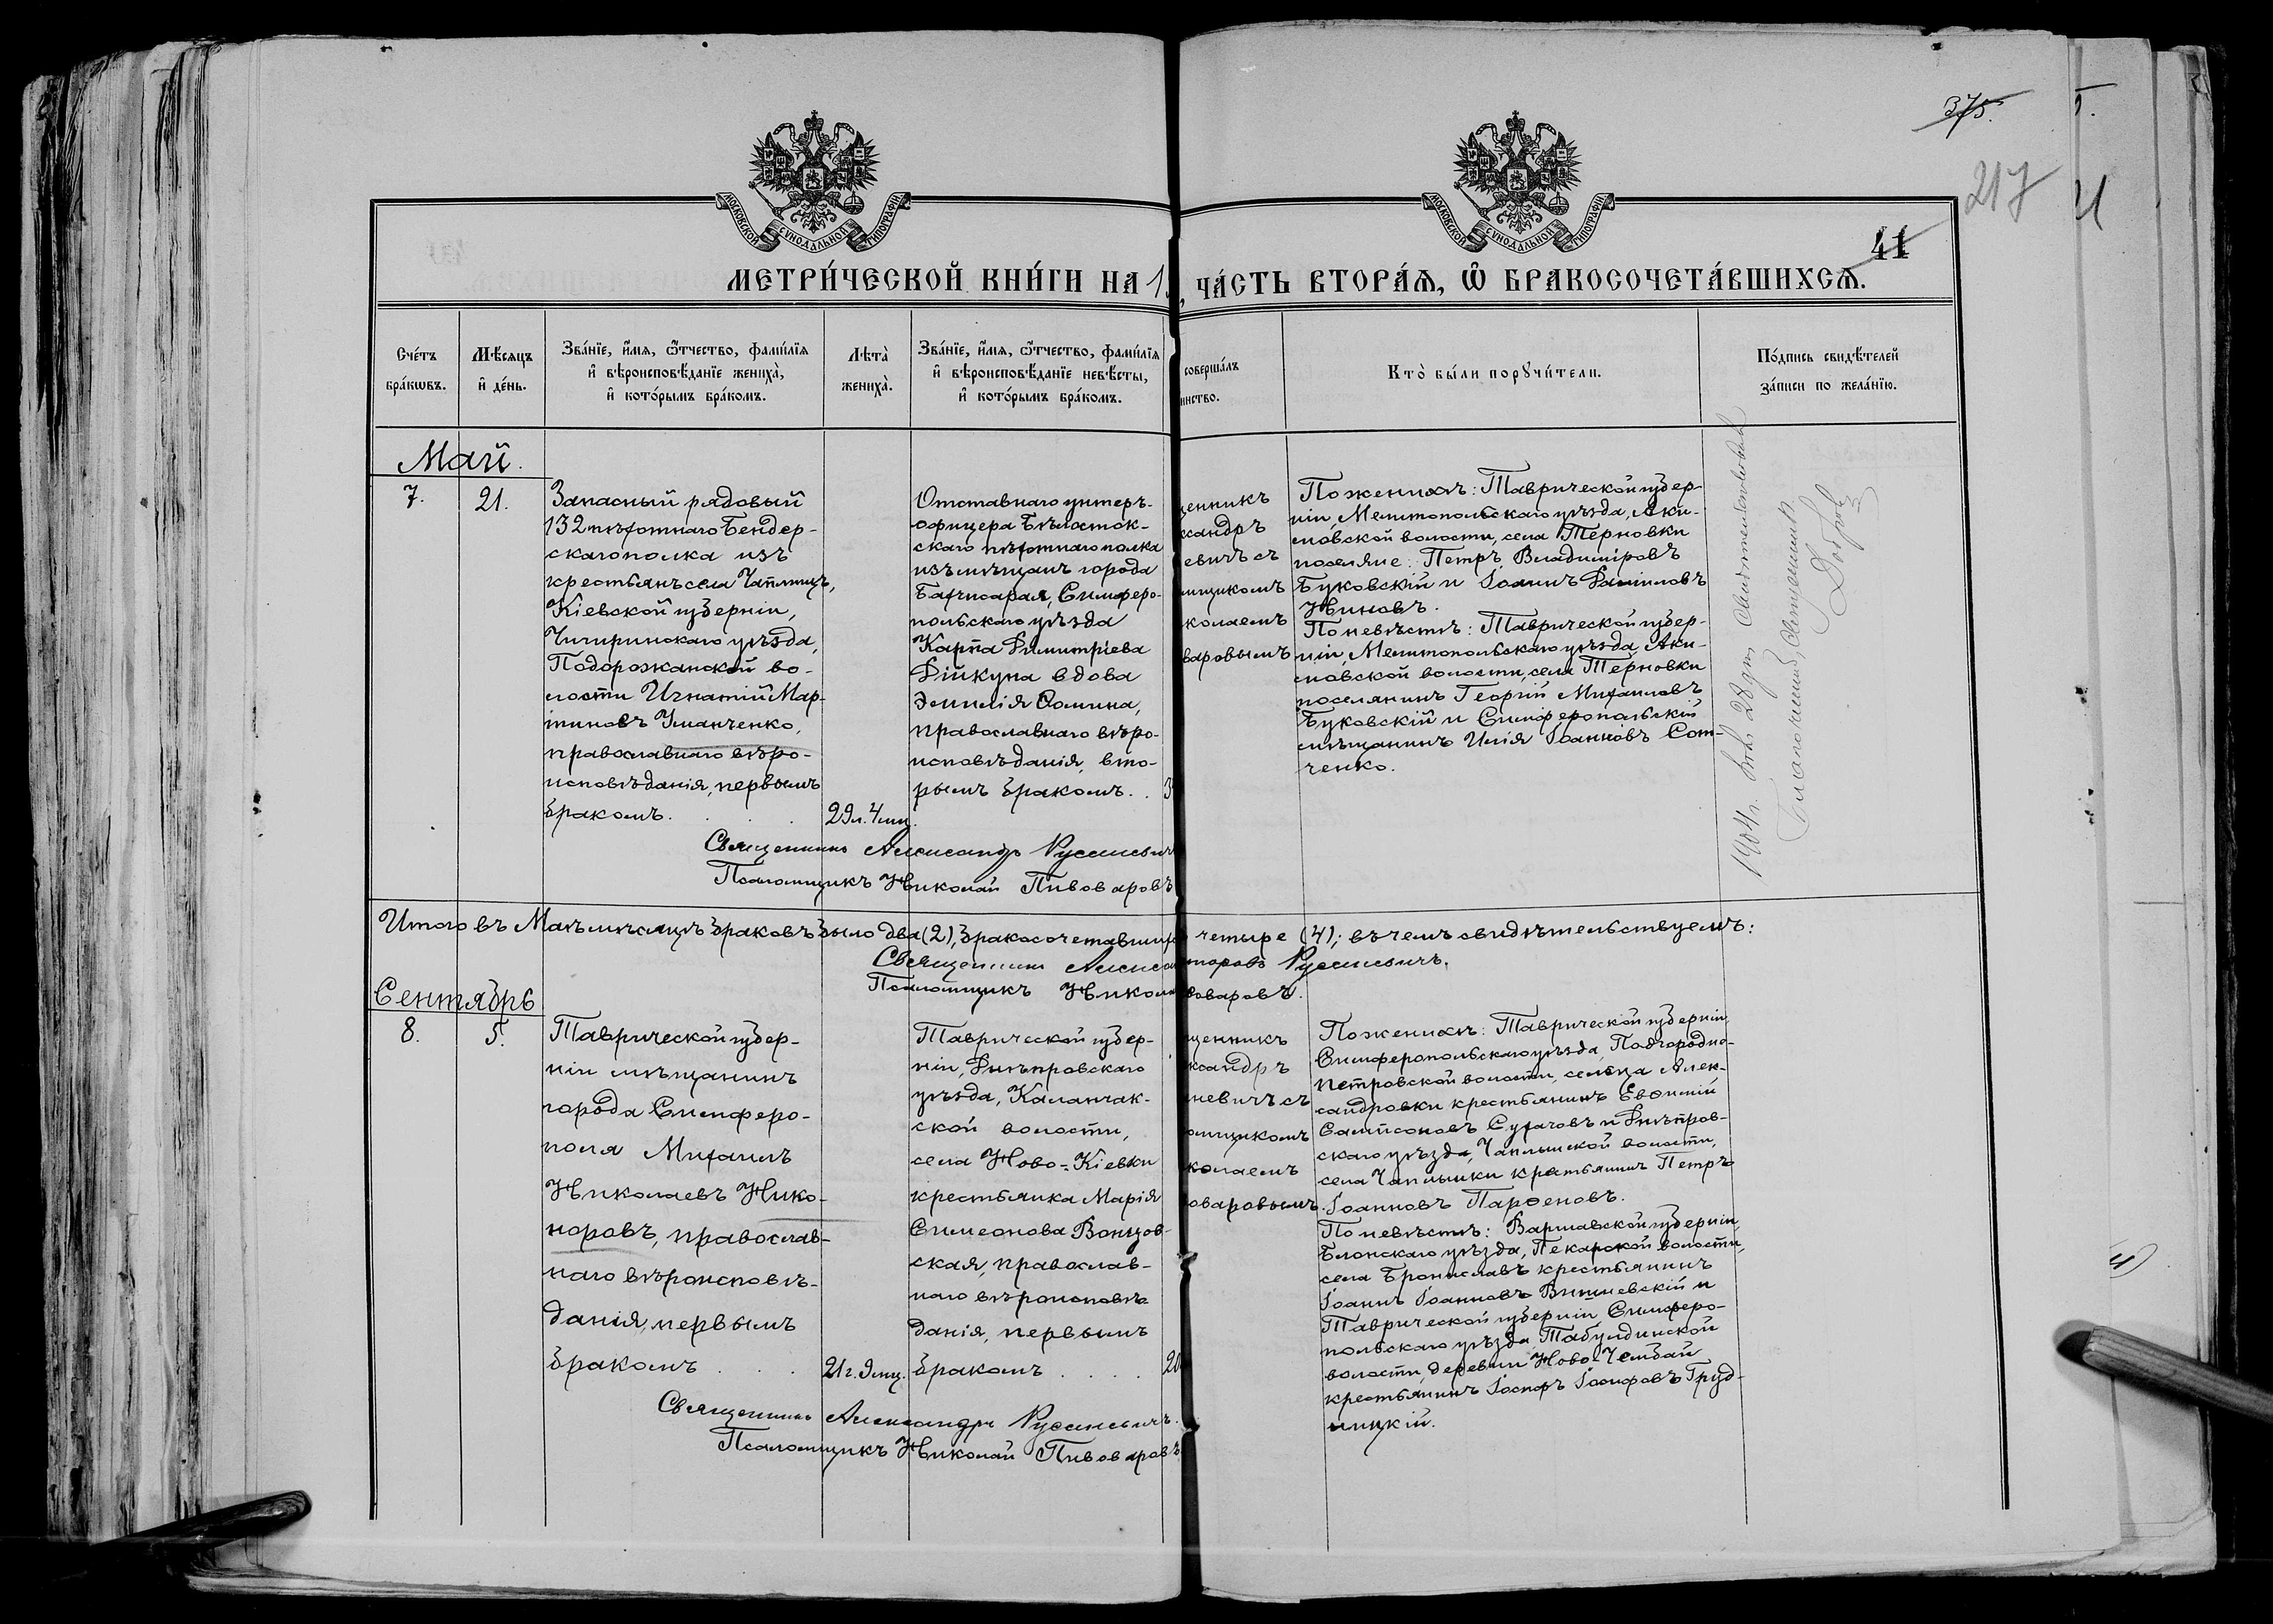 375.
217
41
МОСКОВСКОЙ СѴНОДАЛЬНОЙ ТИПОГРАФІИ
МОСКОВСКОЙ СѴНОДАЛЬНОЙ ТИПОГРАФІИ
МЕТРИ́ЧЕСКОЙ КНИ́ГИ НА 1
, ЧА́СТЬ ВТОРА́Ѧ, Ѽ БРАКОСОЧЕТА́ВШИХСѦ.
Сче́тъ
бра́кѡвъ.
Мѣ́сѧцъ
и҆ де́нь.
Зва́нїе, и҆́мѧ, ѻ҆́тчество, фами́лїѧ
и҆ вѣроисповѣ́данїе жениха̀,
и҆ кото́рымъ бра́комъ.
Лѣ́та
жениха̀.
Зва́нїе, и҆́мѧ, ѻ҆́тчество, фами́лїѧ
и҆ вѣроисповѣ́данїе невѣ́сты,
и҆ кото́рымъ бра́комъ.
соверша́лъ
инство.
Кто̀ бы́ли порꙋчи́тели.
По́дпись свидѣ́телей
за́писи по жела́нїю.
Май.
7.
21.
Запасный рядовый
132 пѣхотнаго Бендер-
скаго полка изъ
крестьянъ села Чаплищъ,
Кіевской губерніи,
Чигиринскаго уѣзда,
Подорожанской во-
лости Игнатій Мар-
тиновъ Уманченко,
православнаго вѣро-
исповѣданія, первымъ
бракомъ.
29 л. 4 мц.
Отставнаго унтеръ-
офицера Бѣлосток-
скаго пѣхотнаго полка
изъ мѣщанъ города
Бахчисарая, Симферо-
польскаго уѣзда
Карпа Димитріева
Дійкуна вдова
Эмилія Ѳомина,
православнаго вѣро-
исповѣданія, вто-
рымъ бракомъ. . 3
щенникъ
ксандръ
евичъ съ
мщикомъ
колаемъ
варовымъ
По женихѣ: Таврической губер-
ніи, Мелитопольскаго уѣзда, Аки-
мовской волости, села Терновки
поселяне: Петръ Владиміровъ
Буковскій и Іоаннъ Даниловъ
Ниновъ.
По невѣстѣ: Таврической губер-
ніи, Мелитопольскаго уѣзда, Аки-
мовской волости, села Терновки
поселянинъ Георгій Михаиловъ
Буковскій и Симферопольскій
мѣщанинъ Илія Іоанновъ Сот-
ченко.
1904 г. 28 дня Свидѣтельствовалъ
Благочинный, Священникъ
Священникъ Александръ Русиневичъ
Псаломщикъ Николай Пивоваровъ
Итого въ Маѣ мѣсяцѣ браковъ было два (2), бракосочетавшихся четыре (4); въ чемъ свидѣтельствуемъ:
Священникъ Александровъ Русиневичъ.
Псаломщикъ Николай Пивоваровъ.
Сентябрь
8.
5.
Таврической губер-
ніи мѣщанинъ
города Симферо-
поля Михаилъ
Николаевъ Нико-
норовъ, православ-
наго вѣроисповѣ-
данія, первымъ
бракомъ . .
21 г. 9 мц.
Таврической губер-
ніи, Днѣпровскаго
уѣзда, Каланчак-
ской волости,
села Ново-Кіевки
крестьянка Марія
Симеонова Вонцов-
ская, православ-
наго вѣроисповѣ-
данія, первымъ
бракомъ . . . . 20
щенникъ
ксандръ
невичъ съ
омщикомъ
колаемъ
оваровымъ.
По женихѣ: Таврической губерніи,
Симферопольскаго уѣзда, Подгородно-
Петровской волости, сельца Алек-
сандровки крестьянинъ Евѳимій
Сампсоновъ Сухачовъ и Днѣпров-
скаго уѣзда, Чаплынской волости,
села Чаплынки крестьянинъ Петръ
Іоанновъ Парѳеновъ.
По невѣстѣ: Варшавской губерніи,
Блонскаго уѣзда, Пекарской волости,
села Брониславъ крестьянинъ
Іоаннъ Іоанновъ Вишневскій и
Таврической губерніи Симферо-
польскаго уѣзда Табулдинской
волости, деревни Ново-Чембай
крестьянинъ Іосифъ Іосифовъ Груд-
ницкій.
Священникъ Александръ Русиневичъ.
Псаломщикъ Николай Пивоваровъ